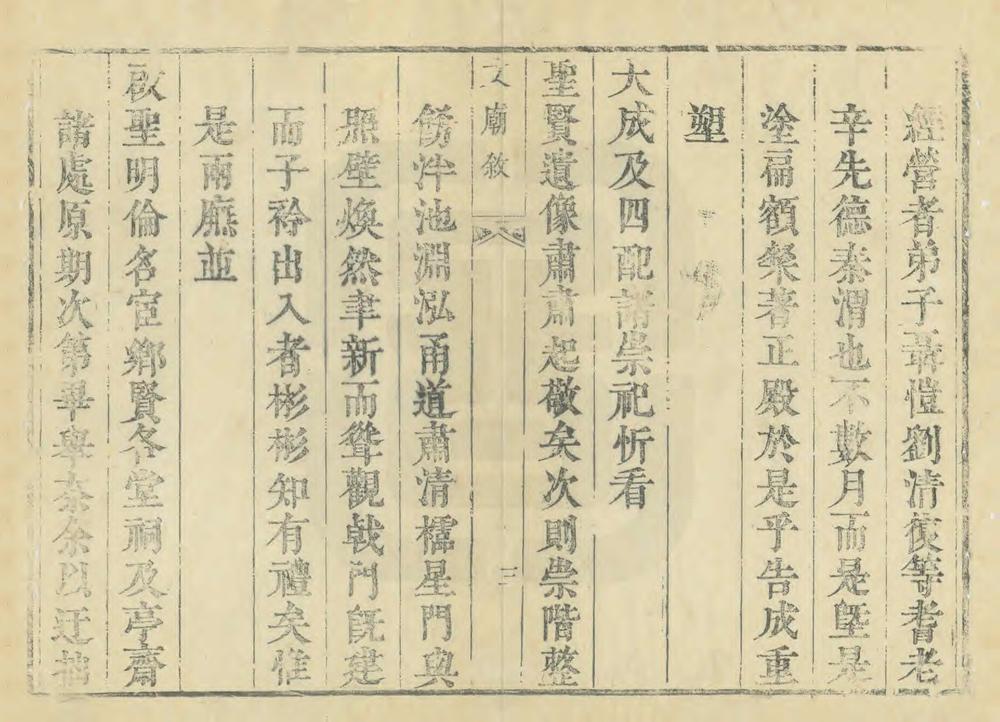 經營者弟子聶愷劉清復等耆老
辛先德秦渭也不數月而是塈是
塗扁額粲著正殿於是乎告成重
塑
大成及四配諸崇祀忻看
聖賢遺像肅肅起敬矣次則崇階整
文廟敘 三
餝泮池淵泓甬道肅清櫺星門與
照壁煥然聿新而聳觀戟門旣建
而子衿出入者彬彬知有禮矣惟
是兩廡並
啟聖明倫名宦鄉賢各堂祠及亭齋
諸處原期次第畢舉柰余以迂拙